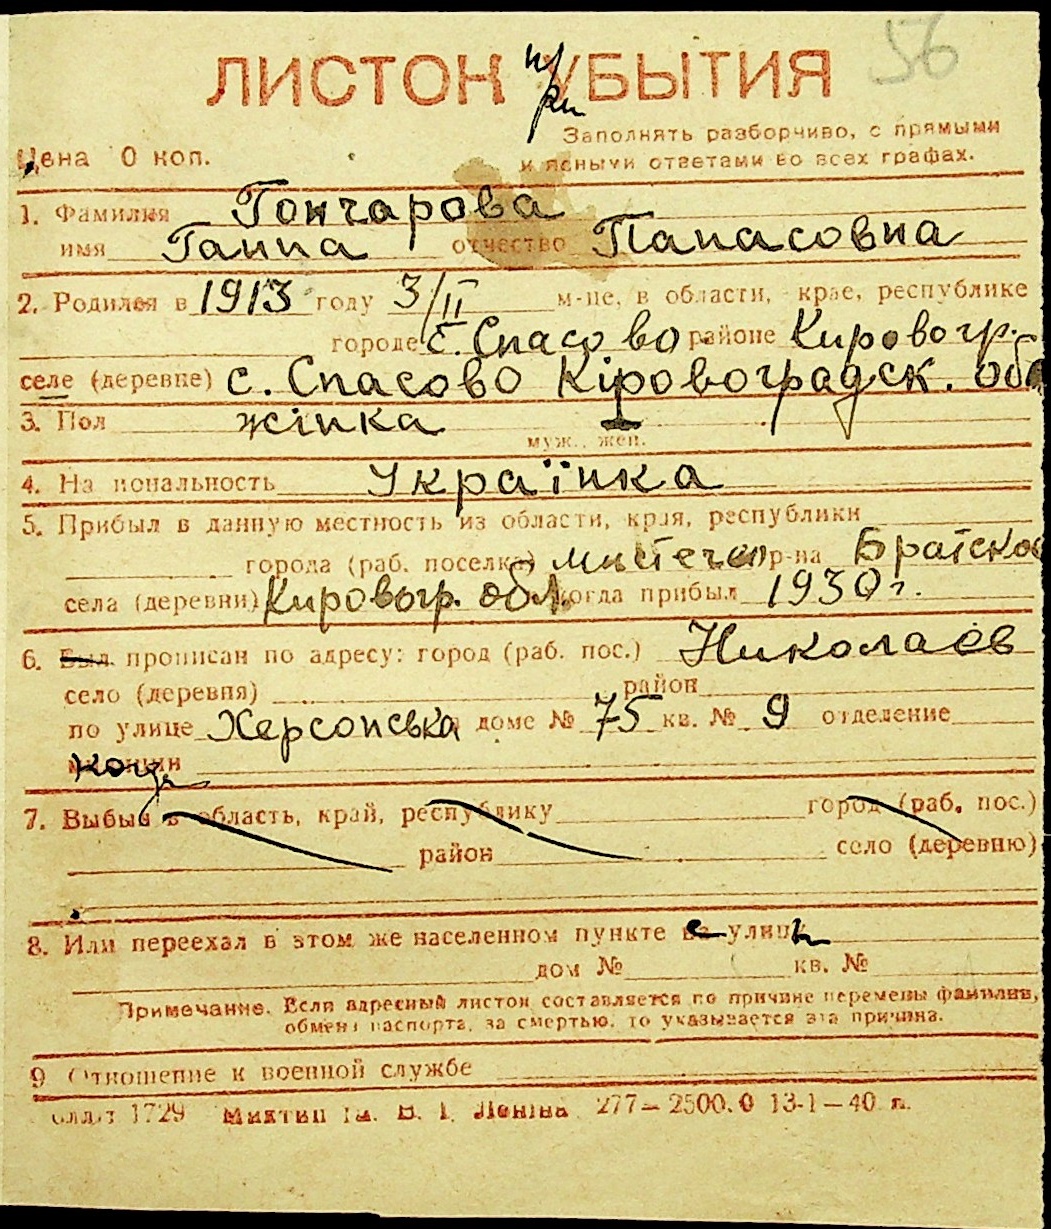 56
ЛИСТОК УБЫТИЯ
при
Заполнять разборчиво, с прямыми
Цена 0 коп.
и ясными ответами во всех графах.
1. Фамилия Гончарова
имя Ганна отчество Панасовна
2. Родился в 1913 году 3/II м-це, в области, крае, республике
городе с. Спасово районе Кировогр.
селе (деревне) с. Спасово Кіровоградск. обл
3. Пол жінка
муж., жен.
4. Национальность Українка
5. Прибыл в данную местность из области, края, республики
города (раб. поселка) містечко р-на Братско
села (деревни) Кировогр. обл. когда прибыл 1930 г.
6. Был прописан по адресу: город (раб. пос.) Николаев
село (деревня) район
по улице Херсонська доме № 75 кв. № 9 отделение
милиции
7. Выбыл в область, край, республику город (раб. пос.)
район село (деревню)
8. Или переехал в этом же населенном пункте с улицы
дом № кв. №
Примечание. Если адресный листок составляется по причине перемены фамилии,
обмена паспорта, за смертью, то указывается эта причина.
9 Отношение к военной службе
1729 277—2500.0 13-1—40 г.